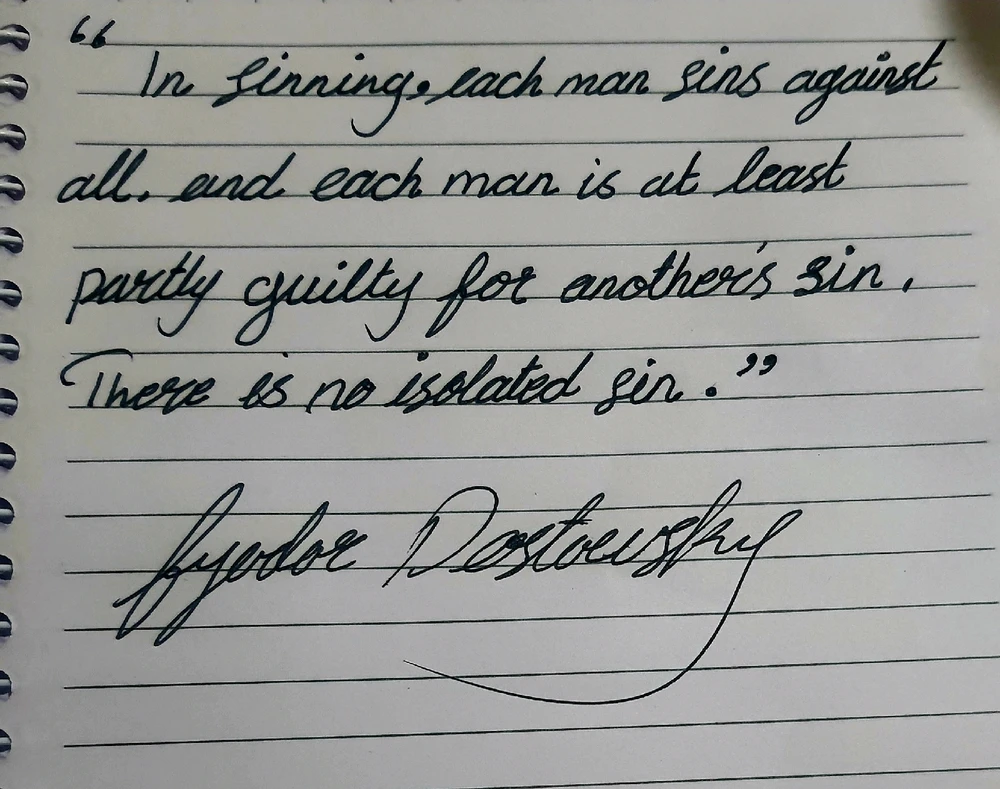 “
In sinning, each man sins against
all, and each man is at least
partly guilty for another's sin.
There is no isolated sin.”
Fyodor Dostoevsky